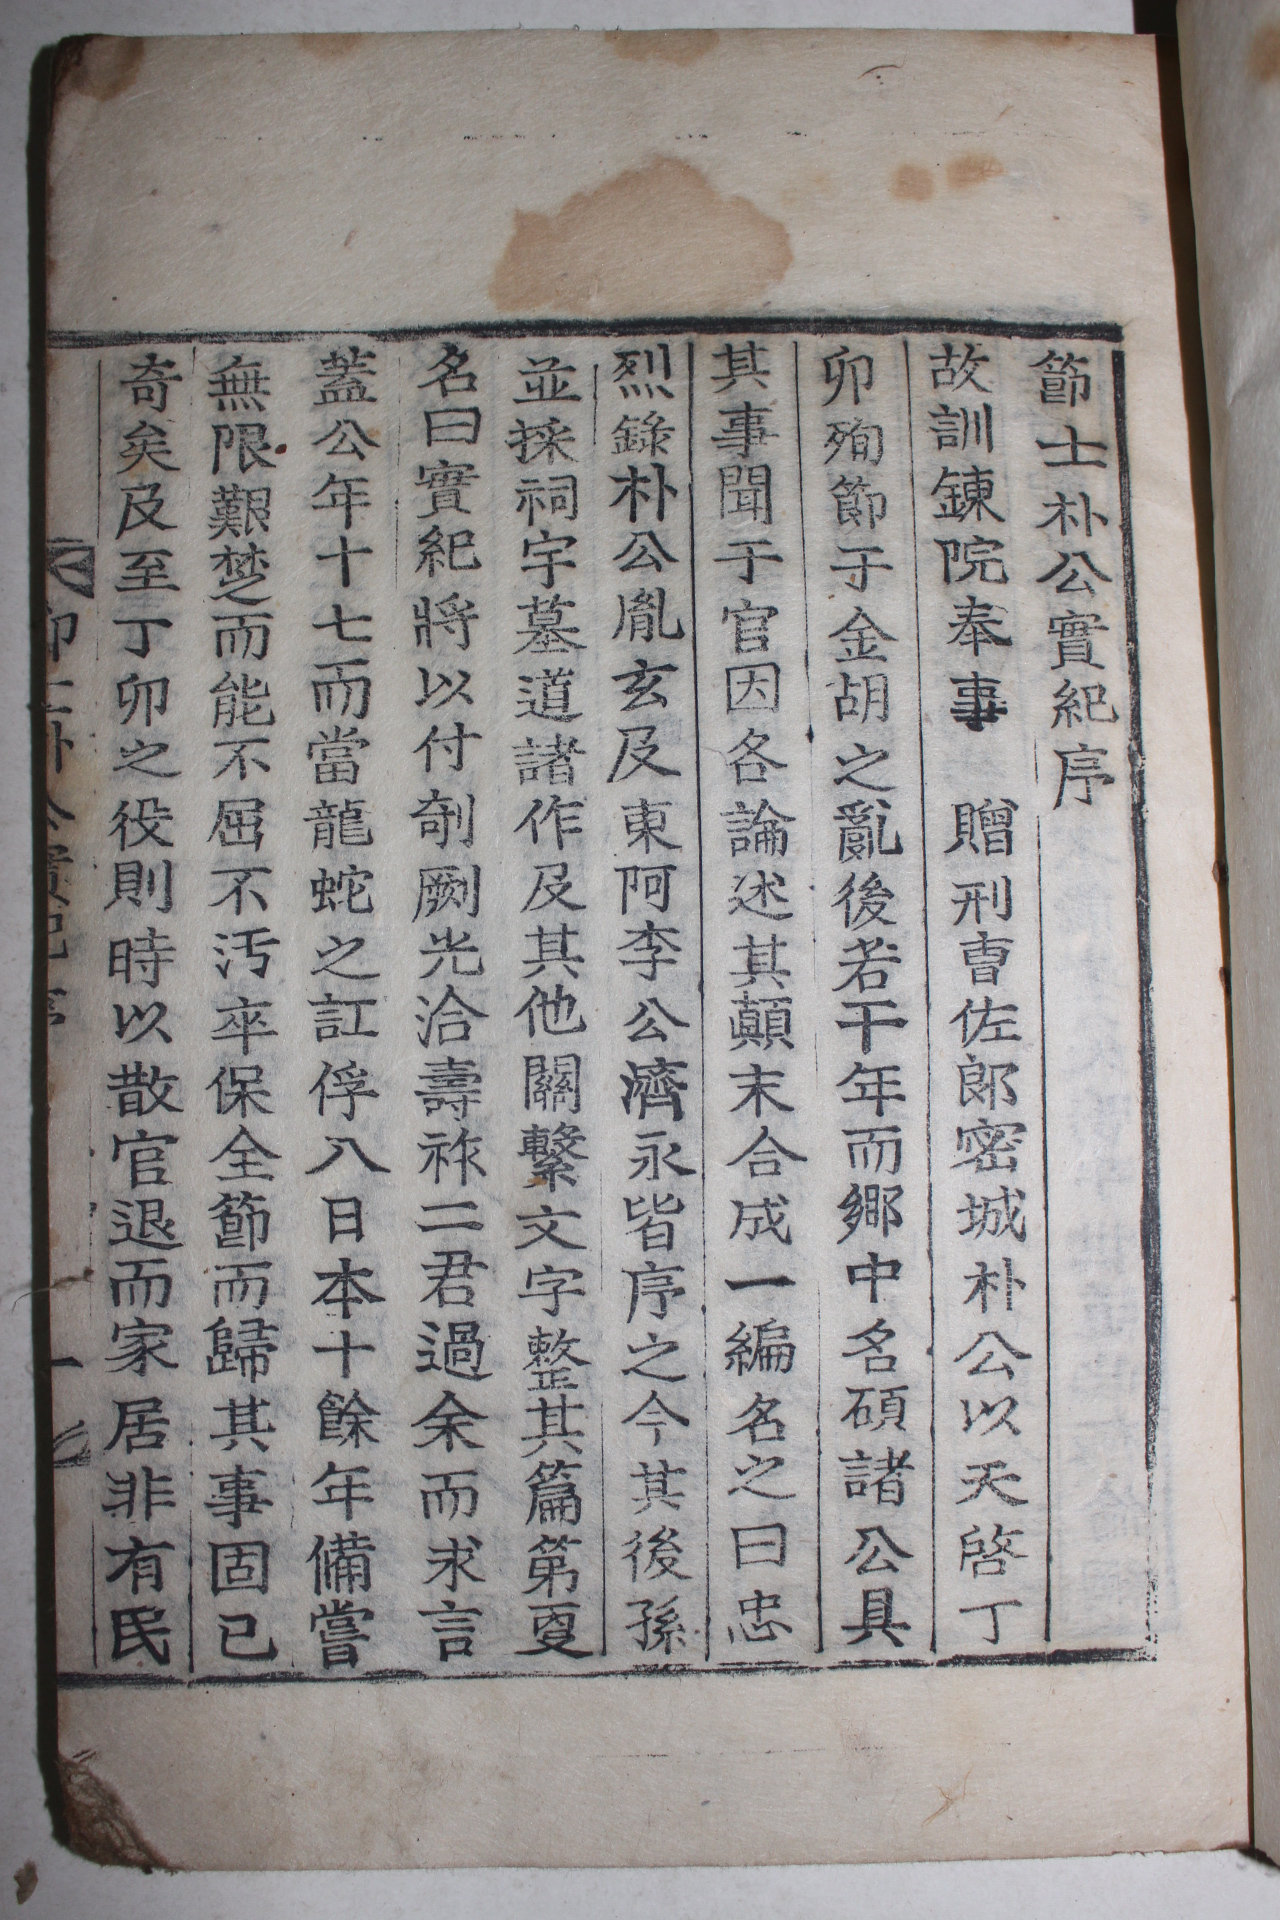 節士朴公實紀序
故訓鍊院奉事　贈刑曺佐郎密城朴公以天啓丁
卯殉節于金胡之亂後若干年而鄕中名碩諸公具
其事聞于官因各論述其顚末合成一編名之曰忠
烈錄朴公胤玄及東阿李公濟永皆序之今其後孫
並採祠宇墓道諸作及其他關繫文字整其篇第更
名曰實紀將以付剞劂光洽壽祚二君過余而求言
蓋公年十七而當龍蛇之訌俘入日本十餘年備嘗
無限艱楚而能不屈不汚卒保全節而歸其事固已
奇矣及至丁卯之役則時以散官退而家居非有民
節士朴公實紀序
一